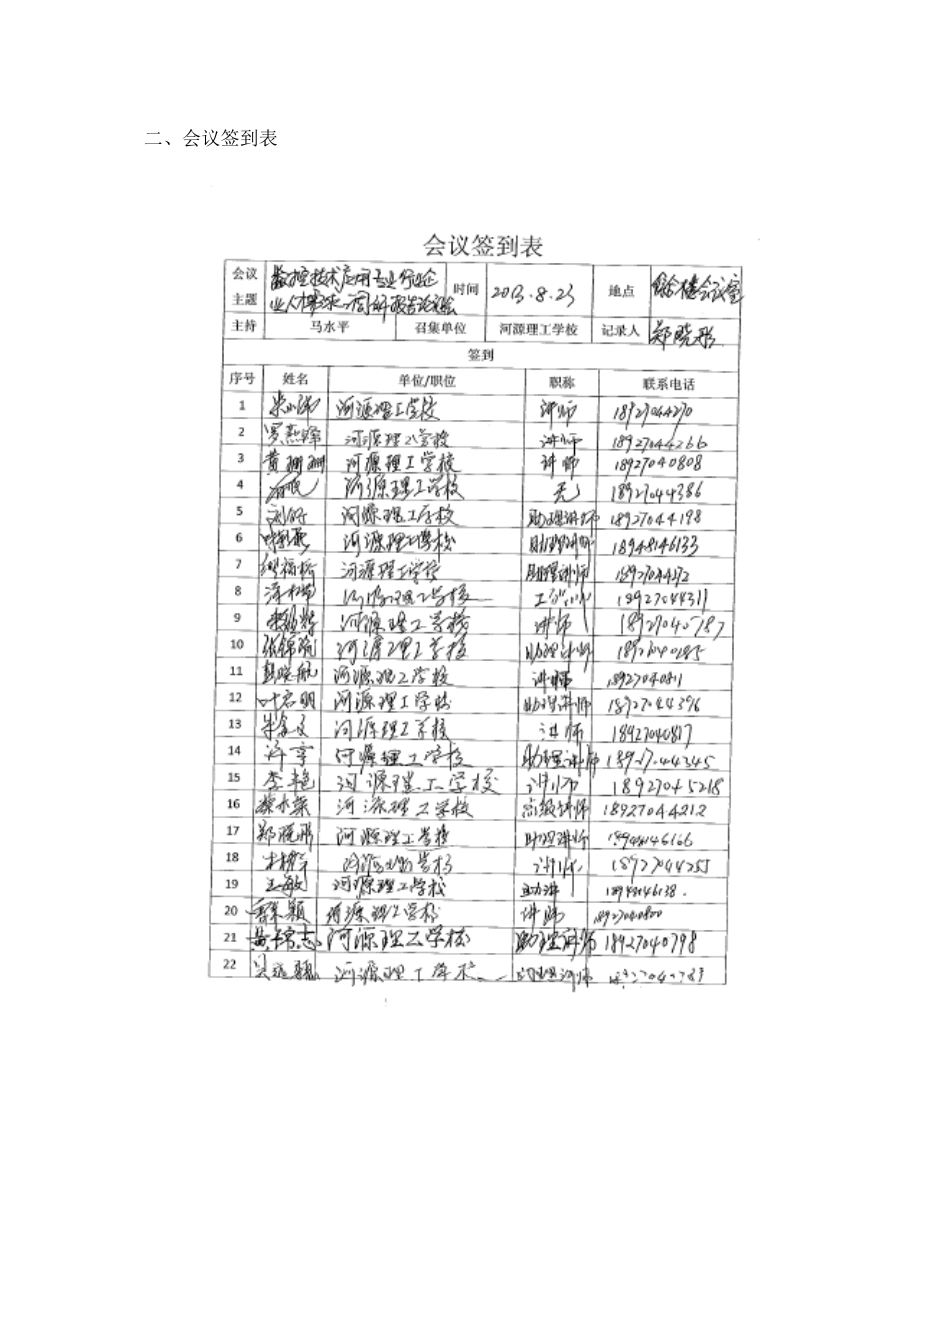 二、会议签到表
会议签到表
会议主题 数控技术应用专业行业企业人才需求调研报告论证会 时间 2013.8.23 地点 综合楼会议室
主持 马水平 召集单位 河源理工学校 记录人 郑晓彤
签到
序号 姓名 单位/职位 职称 联系电话
1 河源理工学校 讲师 18927044270
2 河源理工学校 讲师 18927044266
3 黄珊珊 河源理工学校 讲师 18927040808
4 河源理工学校 无 18927044386
5 河源理工学校 助理讲师 18927044198
6 河源理工学校 助理讲师 18948146133
7 河源理工学校 助理讲师 18927044272
8 河源理工学校 18927044311
9 河源理工学校 讲师 18927040787
10 河源理工学校 助理讲师
11 河源理工学校 讲师 18927040811
12 叶启明 河源理工学校 助理讲师 18927044396
13 河源理工学校 讲师 18927040817
14 许宁 河源理工学校 助理讲师 18927044345
15 李艳 河源理工学校 讲师 18927045218
16 河源理工学校 高级讲师 18927044212
17 郑晓彤 河源理工学校 助理讲师 18948146166
18 河源理工学校 讲师 18927044255
19 王敏 河源理工学校 助讲 18948146138.
20 河源理工学校 讲师 18927040800
21 河源理工学校 助理讲师 18927040798
22 河源理工学校 助理讲师